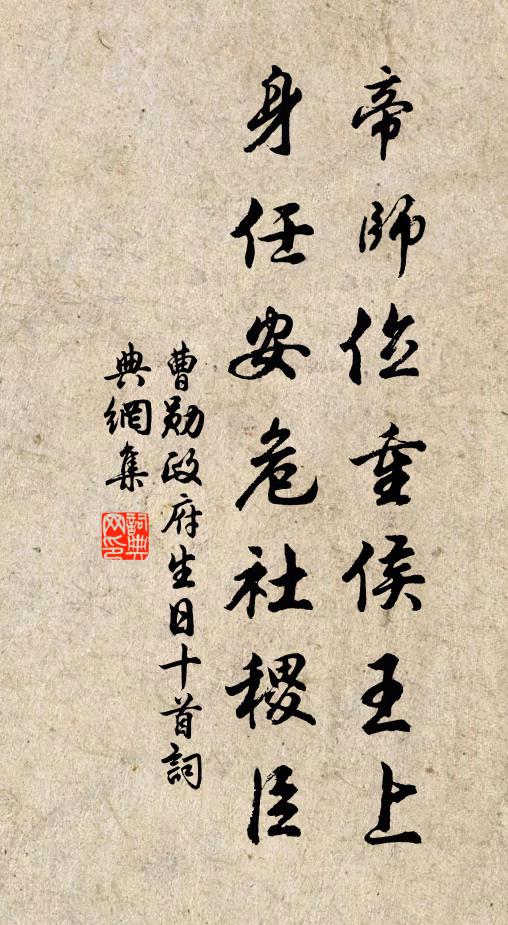 帝師位重侯王上
身任安危社稷臣
曹勛政府生日十首詞
典網集
詞典網印